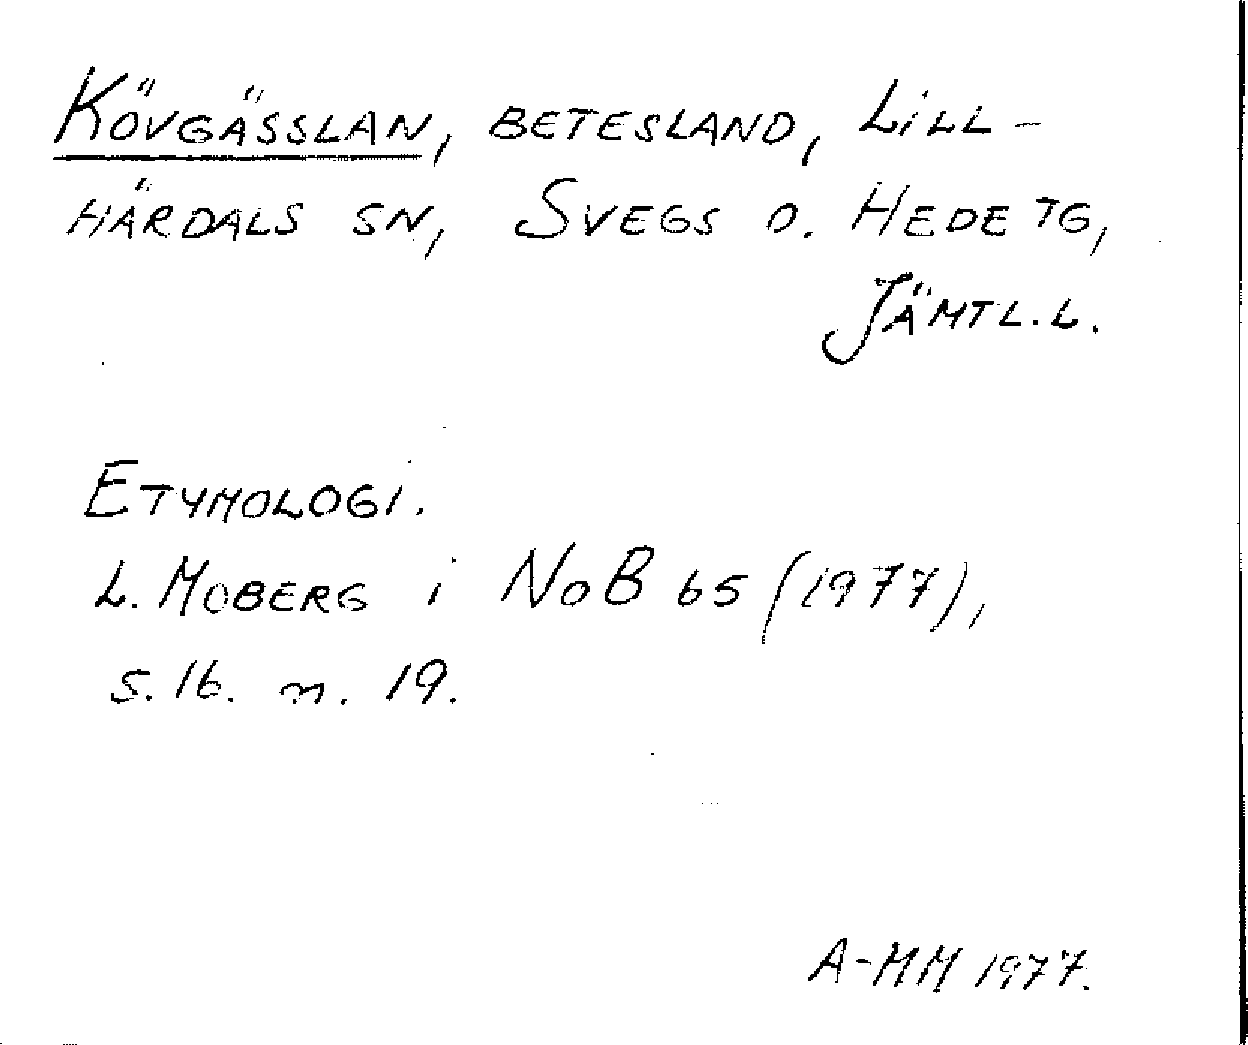 Kövgässlan, betesland, Lill-
härdals sn, Svegs o. Hede tg,
Jämtl.l.
Etymologi.
L. Moberg i NoB 65 (1977),
s. 16. n. 19.
A-MM 1977.